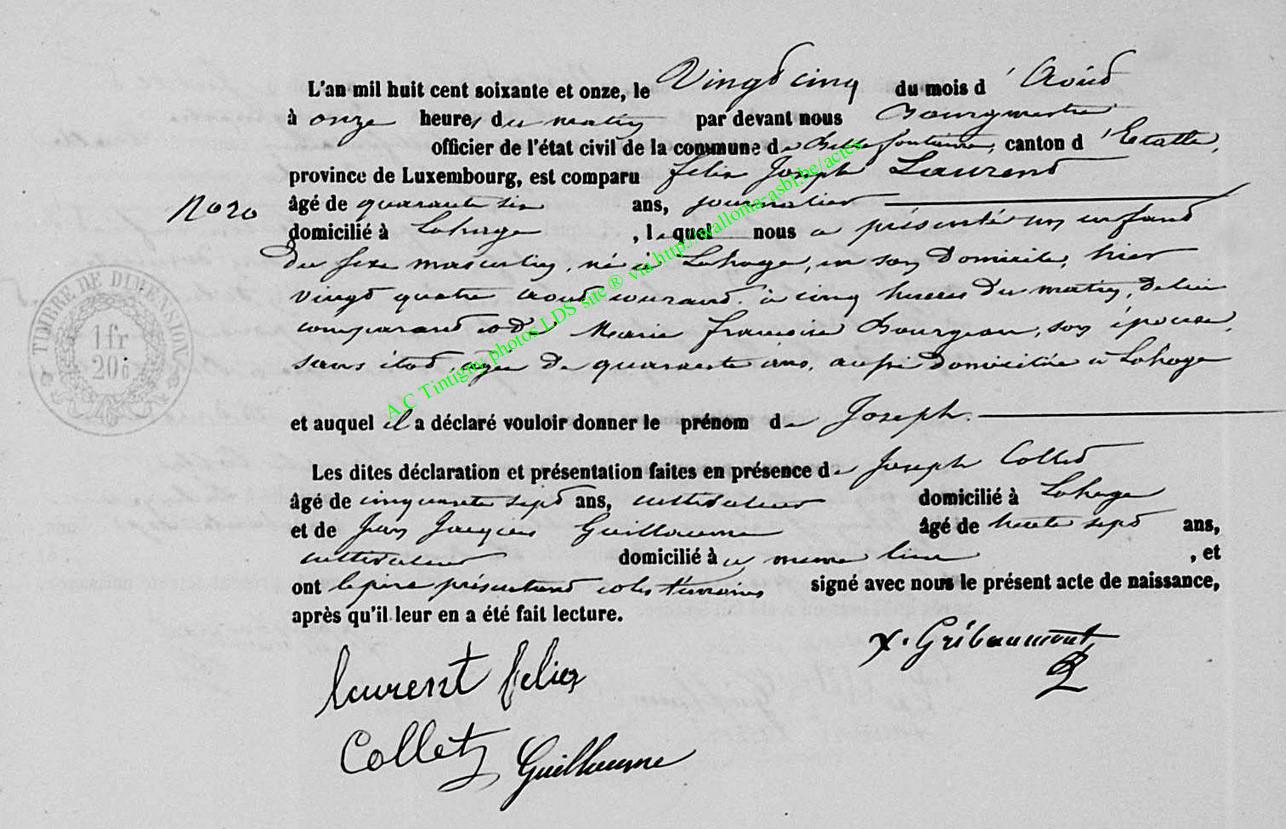 L'an mil huit cent soixante et onze, le Vingt cinq du mois d'Août
à onze heures du matin par devant nous Bourgmestre
officier de l'état civil de la commune de Bellefontaine, canton d'Etalle,
province de Luxembourg, est comparu Felix Joseph Laurent
No 20
âgé de quarante six ans, journalier
domicilié à Lahage, lequel nous a présenté un enfant
du sexe masculin, né à Lahage, en son domicile, hier
vingt quatre août courant à cinq heures du matin, de lui
comparant et de Marie Françoise Bourgeau, son épouse,
sans état, agée de quarante ans, aussi domiciliée à Lahage
et auquel il a déclaré vouloir donner le prénom de Joseph.
Les dites déclaration et présentation faites en présence de Joseph Collet
âgé de cinquante sept ans, cultivateur domicilié à Lahage
et de Jean Jacques Guillaume âgé de trente sept ans,
cultivateur domicilié à même lieu, et
ont le père présentant et les témoins signé avec nous le présent acte de naissance,
après qu'il leur en a été fait lecture.
laurent felix
x. Gribaumont
Collet
Guillaume
TIMBRE DE DIMENSION
1 fr
20
A.C Tintigny photos LDS site ® via http://wallonia-asbl.be/actes